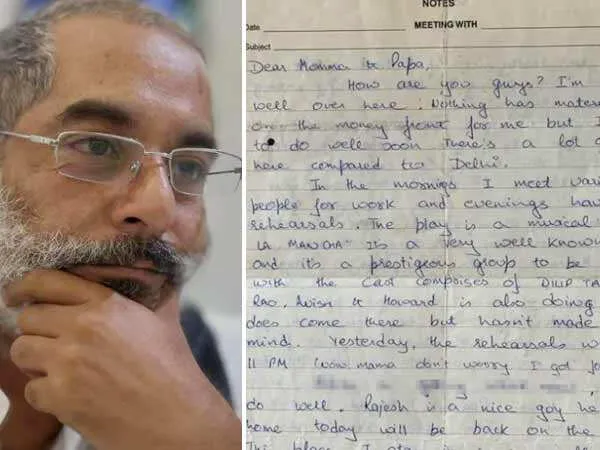 NOTES
Date
MEETING WITH
Subject
Dear Momma & Papa,
How are you guys? I'm
well over here. Nothing has mater
on the money front for me but I
to do well soon There's a lot
here compared to Delhi.
In the mornings I meet vari
people for work and evenings hav
rehearsals. The play is a musical
LA MANCHA" It's a very well known
and it's a prestigious group to be
with the cast comprises of DILIP TA
Rao. & Howard is also doing
does come there but hasn't made
mind. Yesterday, the rehearsals w
11 PM (Now mama don't worry I got
do well. Rajesh is a nice guy he
home today will be back on the
This place I